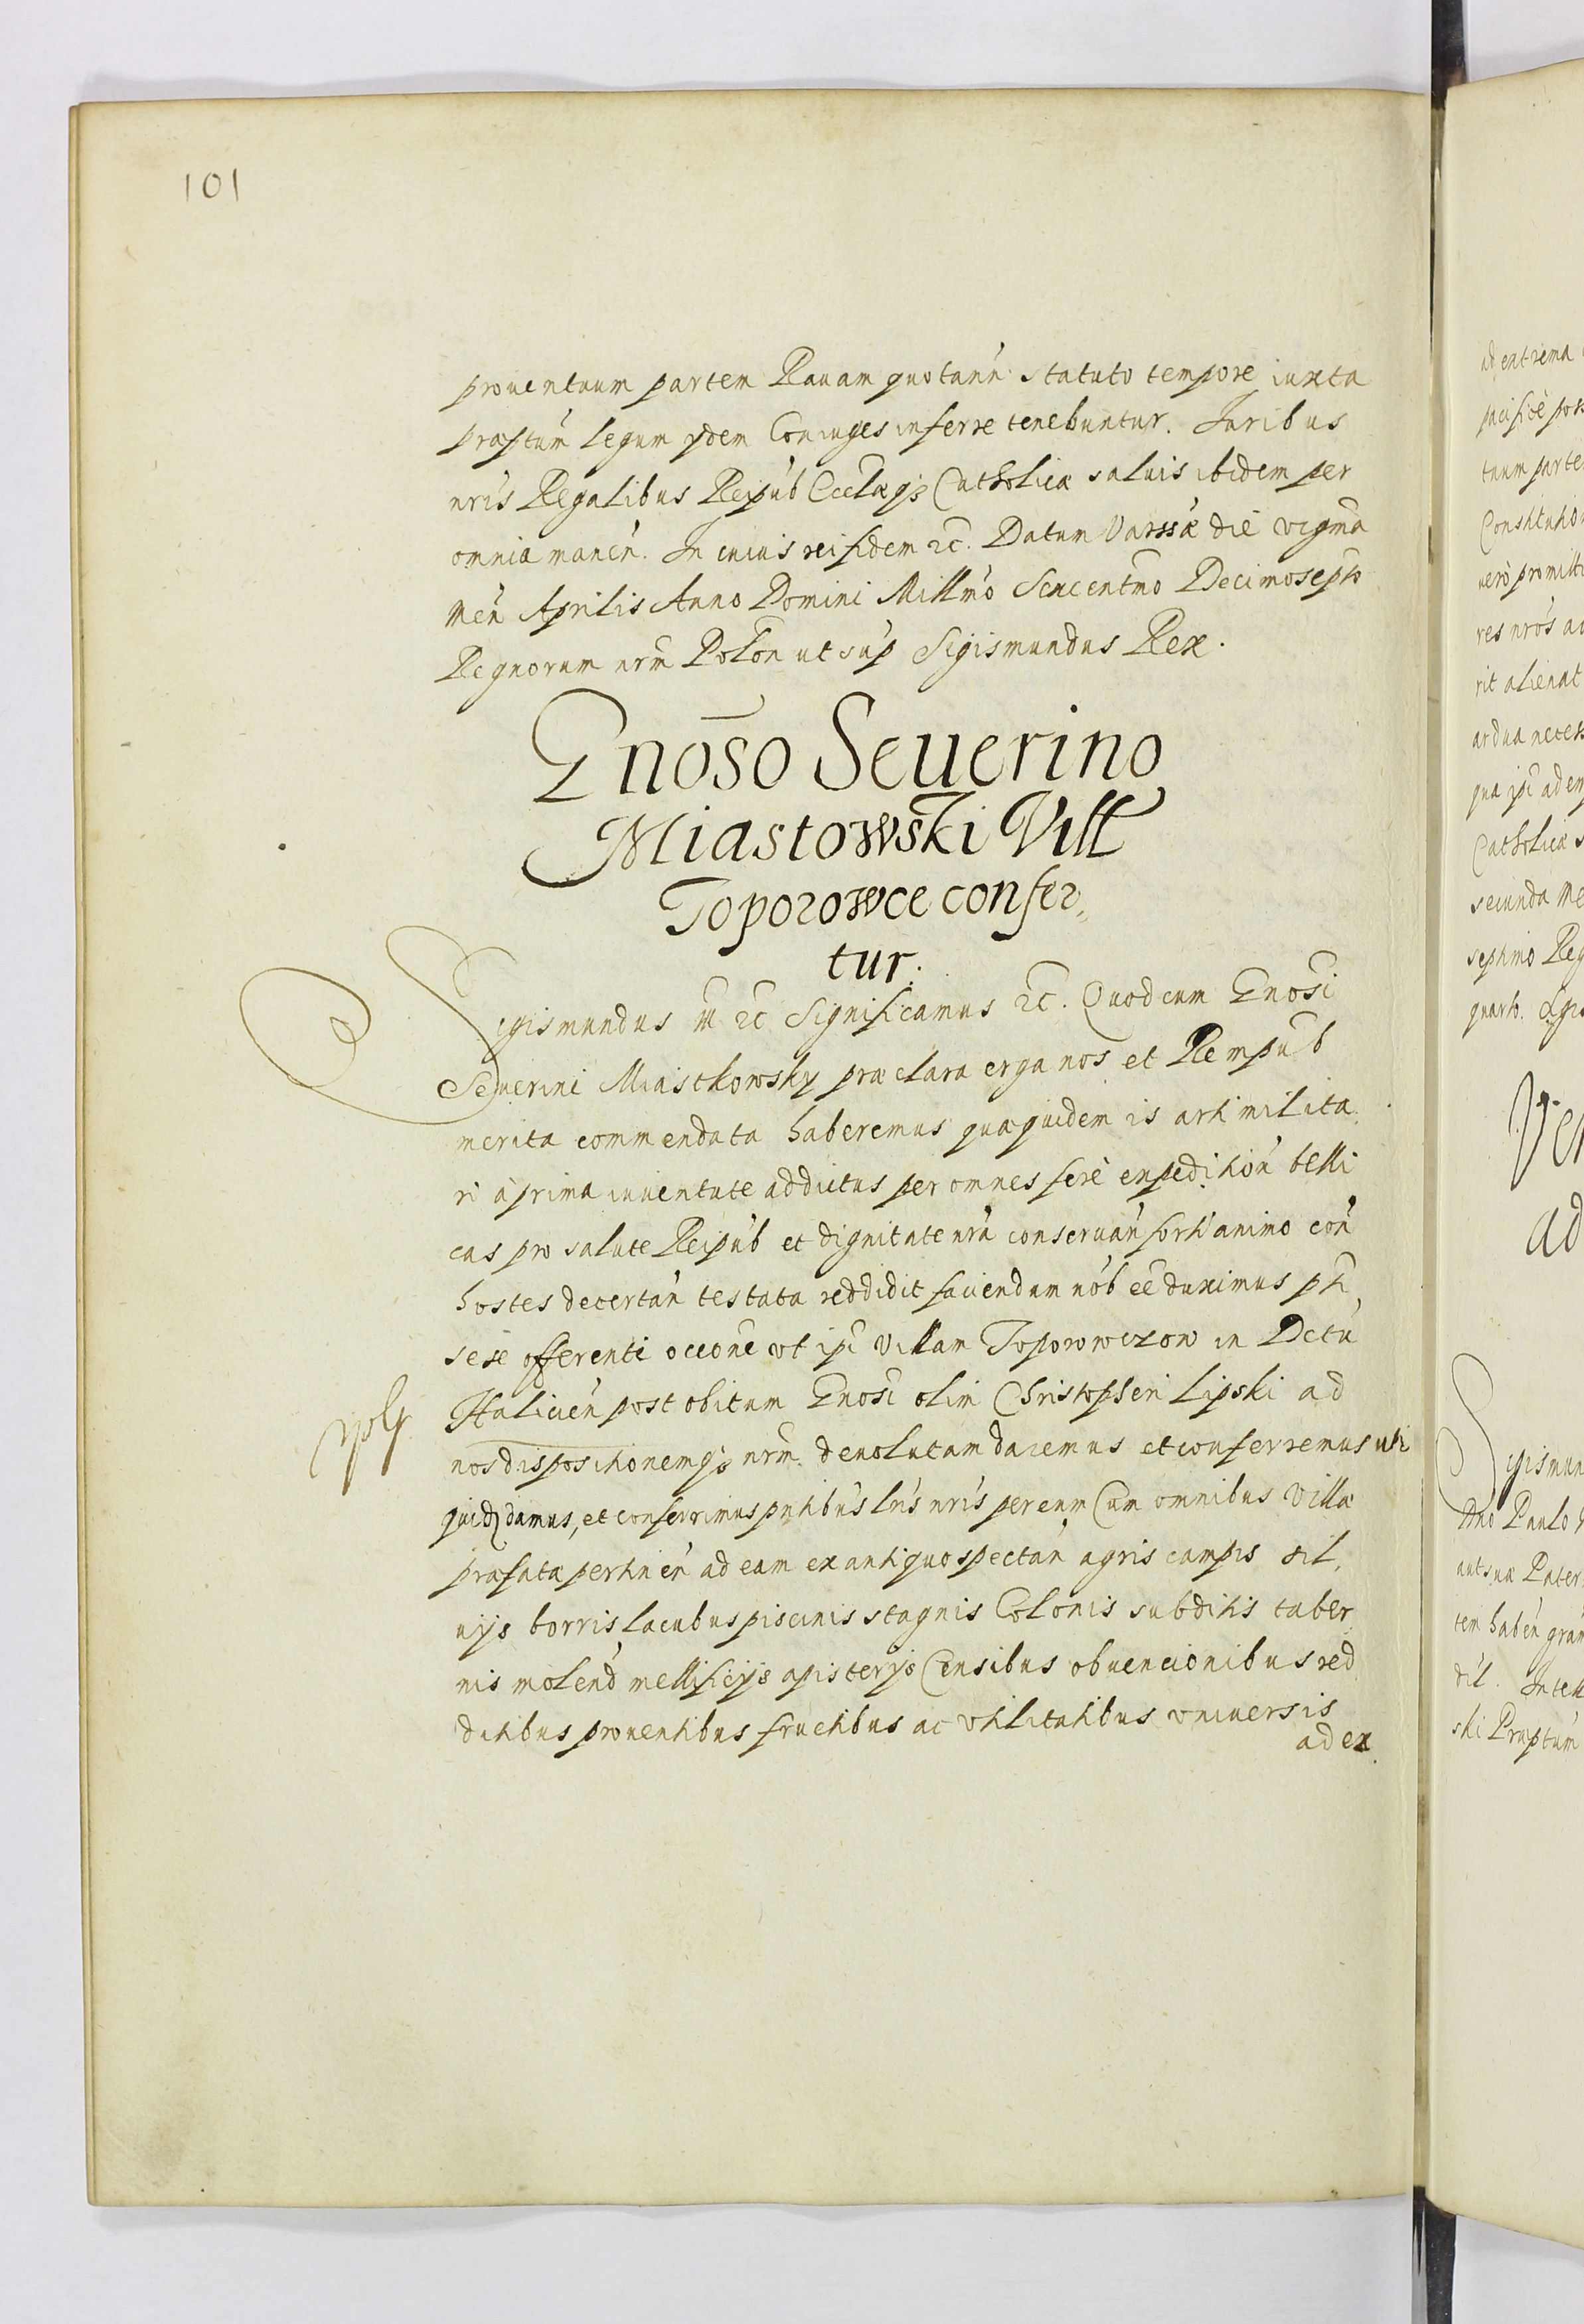 101
prouentuum partem Rauam quotann statuto tempore iuxta
præptum legum ydem Coniuges inferre tenebuntur. Juribus
nris Regalibus Reipub Ecclæqȝ Catholicæ saluis ibidem per
omnia manen. In cuius rei fidem ꝛc. Datum Varssæ die vigma
Men Aprilis Anno Domini Millmo Sexcentmo Decimosepto
Regnorum nrm Polon ut sup Sigismundus Rex.
Gnoso Seuerino
Miastowski Vill
Toporowce confer„
tur.
Sigismundus ꝛc Significamus ꝛc. Quod cum Gnosi
Seuerini Miastkowsky præclara erga nos et Rempub
merita commendata haberemus quæ quidem is arti milita
ri à prima iuuentute addictus per omnes ferè expedition belli
cas pro salute Reipub et dignitate nra conseruan forti animo con
hostes decertan testata reddidit faciendum nob ee duximus
sese offerenti occone vt ipi Villam Toporowczow in Dctu
Halicien post obitum Gnosi olim Christopheri Lipski ad
nos dispositionemqȝ nrm deuolutam daremus et conferremus uti
quidẓ damus, et conferrimus pntibus lris nris per eum Cum omnibus Villæ
præfata pertinen ad eam ex antiquo spectan agris campis sil,
uys borris lacubus piscinis stagnis Colonis subditis taber
nis molend mellificys apisterys Censibus obuencionibus red
ditibus prouentibus fructibus ac vtilitatibus vniuersis
ad ex
ad extrema
pacificè poss
tuum parte
Constitutio
uerò promitti
res nros au
rit alienat
ardua necess
qua ipi adem
Catholicæ s
secunda Me
septimo Reg
quarto. Sgis
Ver
ad
Sigismun
Dno Paulo
aut suæ Pater
tem haben gram
dil. Intell
ski Præptum